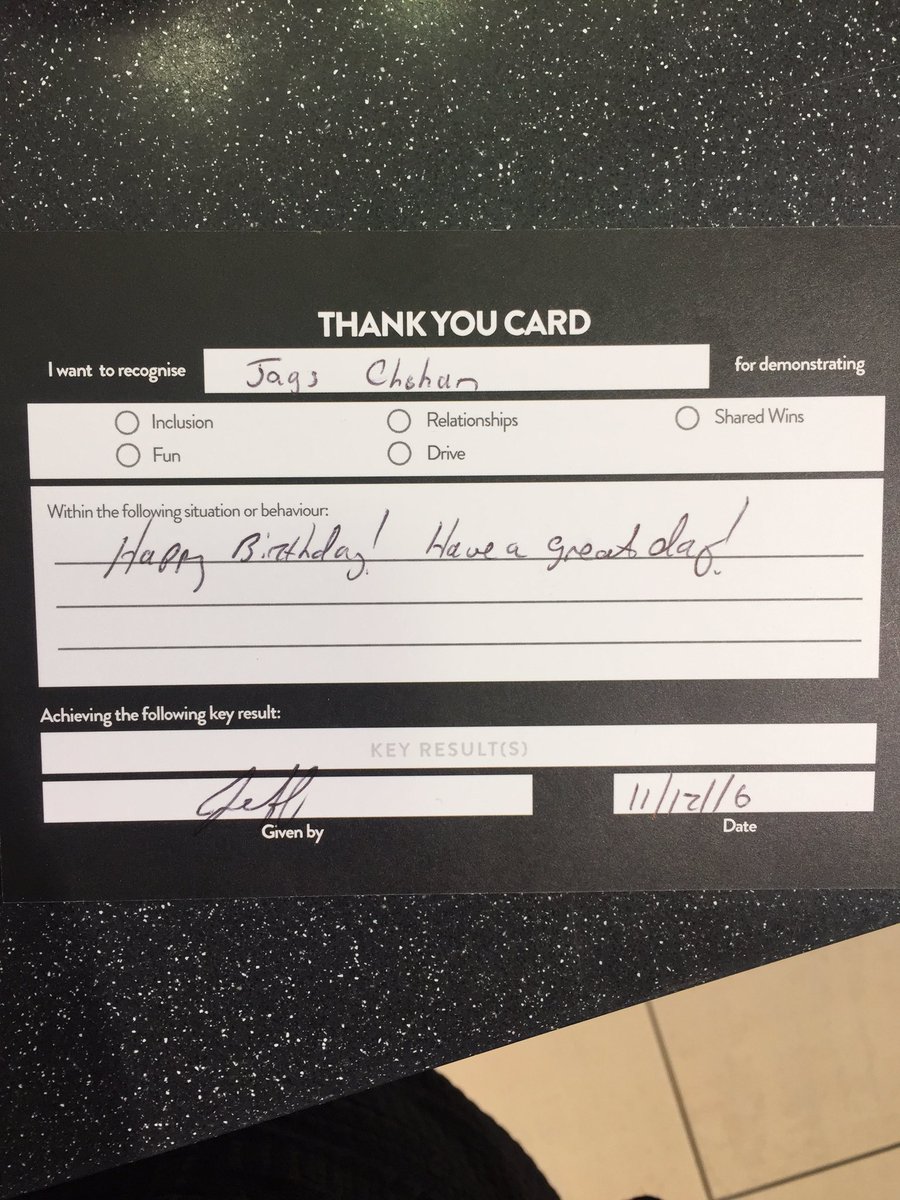 THANK YOU CARD
I want to recognise Jags Chohan for demonstrating
Inclusion Relationships Shared Wins
Fun Drive
Within the following situation or behaviour:
Happy Birthday! Have a great day!
Achieving the following key result:
KEY RESULT(S)
11/12/16
Given by Date